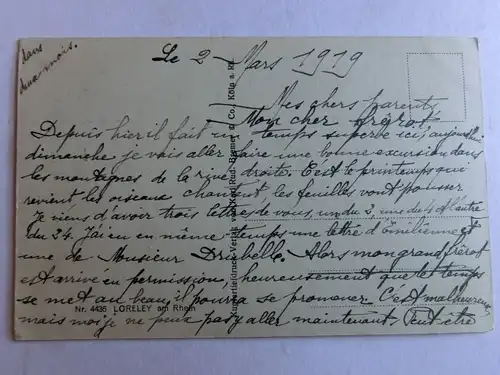 Le 2 Mars 1919
Mes chers parents,
Mon cher frérot
Depuis hier il fait un temps superbe ici, aujourd'hui
dimanche je vais aller faire une bonne excursion dans
les montagnes de la rive droite. C'est le printemps qui
revient, les oiseaux chantent, les feuilles vont pousser
Je viens d'avoir trois lettres de vous, un du 2, une du 4 et l'autre
du 24. J'ai eu en même temps une lettre d'Emilienne et
une de Monsieur Alors mon grand frérot
est arrivé en permission, heureusement que le temps
se met au beau, il pourra se promener. C'est malheureux
mais moi je ne peux pas y aller maintenant. Peut être
dans
deux mois.
Kupfertiefdruck-Verlag & Co., Köln a. Rh.
Nr. 4435 LORELEY am Rhein